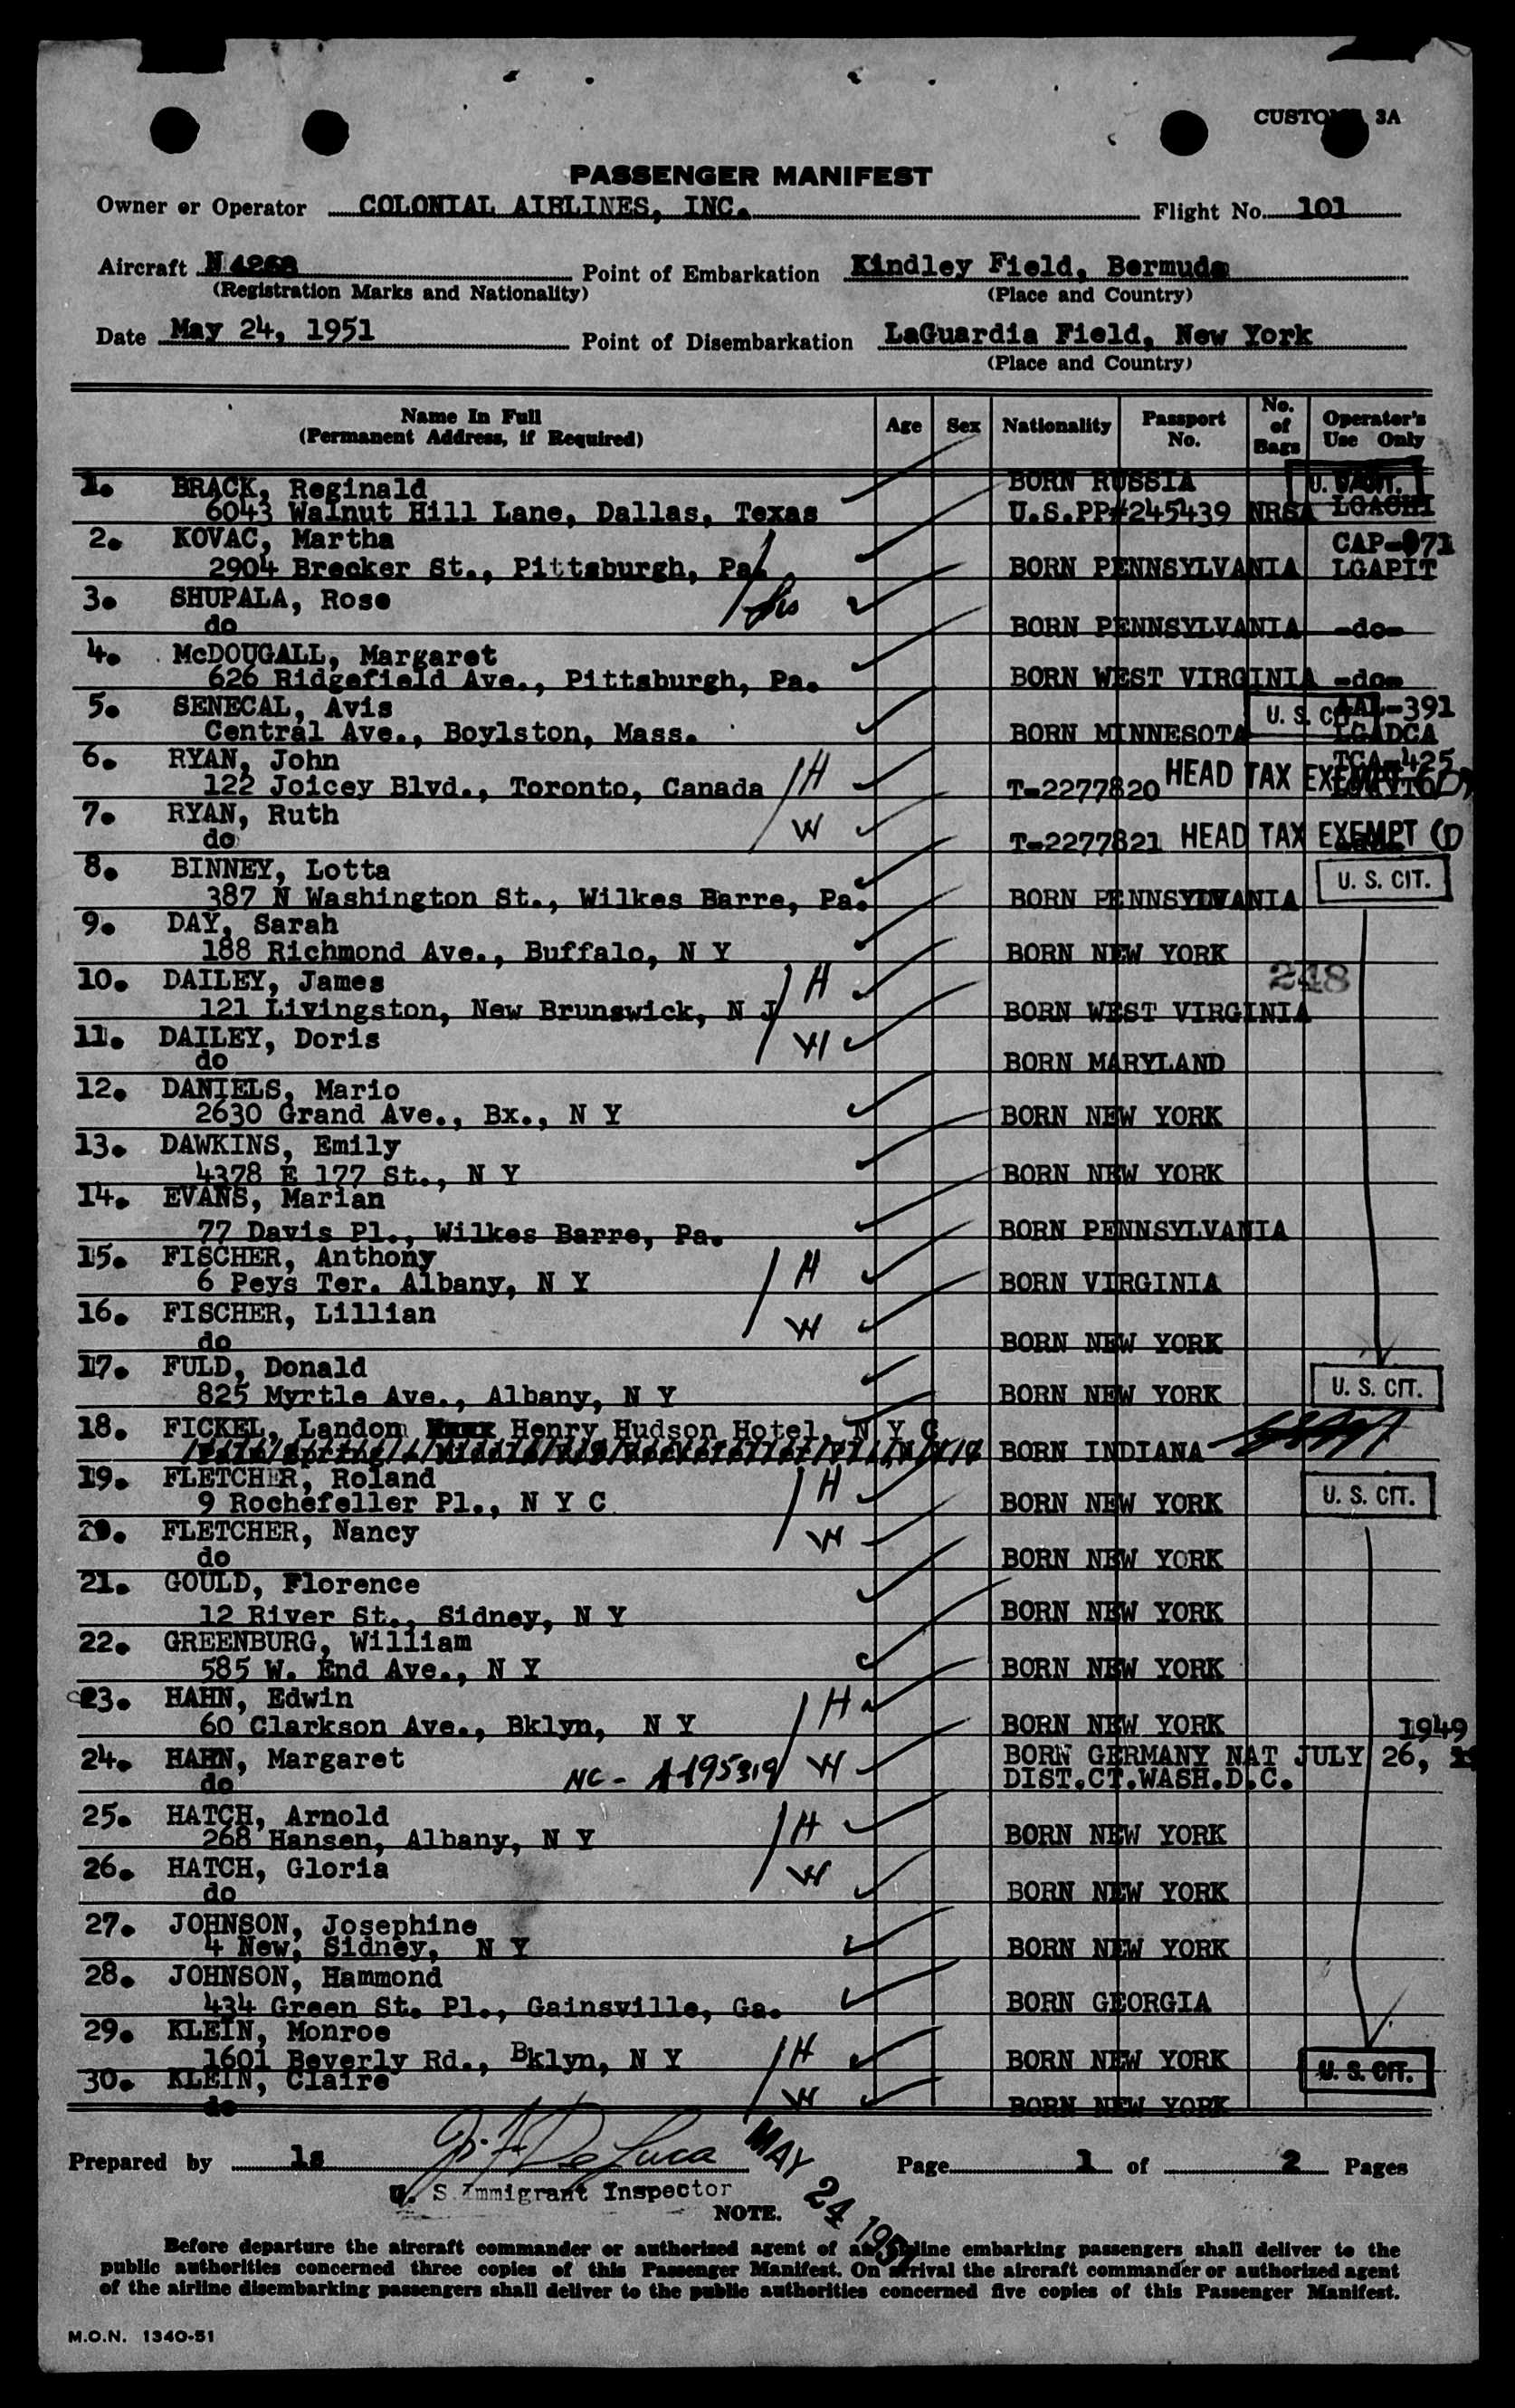 CUSTOMS 3A
PASSENGER MANIFEST
Owner or Operator COLONIAL AIRLINES, INC. Flight No. 101
Aircraft N 4268 Point of Embarkation Kindley Field, Bermuda
(Registration Marks and Nationality) (Place and Country)
Date May 24, 1951 Point of Disembarkation LaGuardia Field, New York
(Place and Country)
Name In Full (Permanent Address, if Required) Age Sex Nationality Passport No. No. of Bags Operator's Use Only
1. BRACK, Reginald BORN RUSSIA U. S. CIT.
6043 Walnut Hill Lane, Dallas, Texas U.S.PP#245439 NRSA LGACHI
2. KOVAC, Martha CAP-871
2904 Brecker St., Pittsburgh, Pa. BORN PENNSYLVANIA LGAPIT
3. SHUPALA, Rose Sis
do BORN PENNSYLVANIA -do-
4. McDOUGALL, Margaret
626 Ridgefield Ave., Pittsburgh, Pa. BORN WEST VIRGINIA -do-
5. SENECAL, Avis U. S. CIT. AAL-391
Central Ave., Boylston, Mass. BORN MINNESOTA LGADCA
6. RYAN, John H TCA-425
122 Joicey Blvd., Toronto, Canada T-2277820 HEAD TAX EXEMPT (D)
7. RYAN, Ruth W
do T-2277821 HEAD TAX EXEMPT (D
8. BINNEY, Lotta U. S. CIT.
387 N Washington St., Wilkes Barre, Pa. BORN PENNSYLVANIA
9. DAY, Sarah
188 Richmond Ave., Buffalo, N Y BORN NEW YORK
10. DAILEY, James H 248
121 Livingston, New Brunswick, N J BORN WEST VIRGINIA
11. DAILEY, Doris W
do BORN MARYLAND
12. DANIELS, Mario
2630 Grand Ave., Bx., N Y BORN NEW YORK
13. DAWKINS, Emily
4378 E 177 St., N Y BORN NEW YORK
14. EVANS, Marian
77 Davis Pl., Wilkes Barre, Pa. BORN PENNSYLVANIA
15. FISCHER, Anthony H
6 Peys Ter. Albany, N Y BORN VIRGINIA
16. FISCHER, Lillian W
do BORN NEW YORK
17. FULD, Donald
825 Myrtle Ave., Albany, N Y BORN NEW YORK U. S. CIT.
18. FICKEL, Landom Henry Hudson Hotel, N Y C
BORN INDIANA
19. FLETCHER, Roland H U. S. CIT.
9 Rochefeller Pl., N Y C BORN NEW YORK
20. FLETCHER, Nancy W
do BORN NEW YORK
21. GOULD, Florence
12 River St., Sidney, N Y BORN NEW YORK
22. GREENBURG, William
585 W. End Ave., N Y BORN NEW YORK
23. HAHN, Edwin H
60 Clarkson Ave., Bklyn, N Y BORN NEW YORK 1949
24. HAHN, Margaret NC - A195319 W BORN GERMANY NAT JULY 26,
do DIST.CT.WASH.D.C.
25. HATCH, Arnold H
268 Hansen, Albany, N Y BORN NEW YORK
26. HATCH, Gloria W
do BORN NEW YORK
27. JOHNSON, Josephine
4 New, Sidney, N Y BORN NEW YORK
28. JOHNSON, Hammond
434 Green St. Pl., Gainsville, Ga. BORN GEORGIA
29. KLEIN, Monroe H
1601 Beverly Rd., Bklyn, N Y BORN NEW YORK U. S. CIT.
30. KLEIN, Claire W
do BORN NEW YORK
Prepared by ls J. F. DeLuca MAY 24 1951 Page 1 of 2 Pages
U. S. Immigrant Inspector
NOTE.
Before departure the aircraft commander or authorized agent of an airline embarking passengers shall deliver to the
public authorities concerned three copies of this Passenger Manifest. On arrival the aircraft commander or authorized agent
of the airline disembarking passengers shall deliver to the public authorities concerned five copies of this Passenger Manifest.
M.O.N. 1340-51